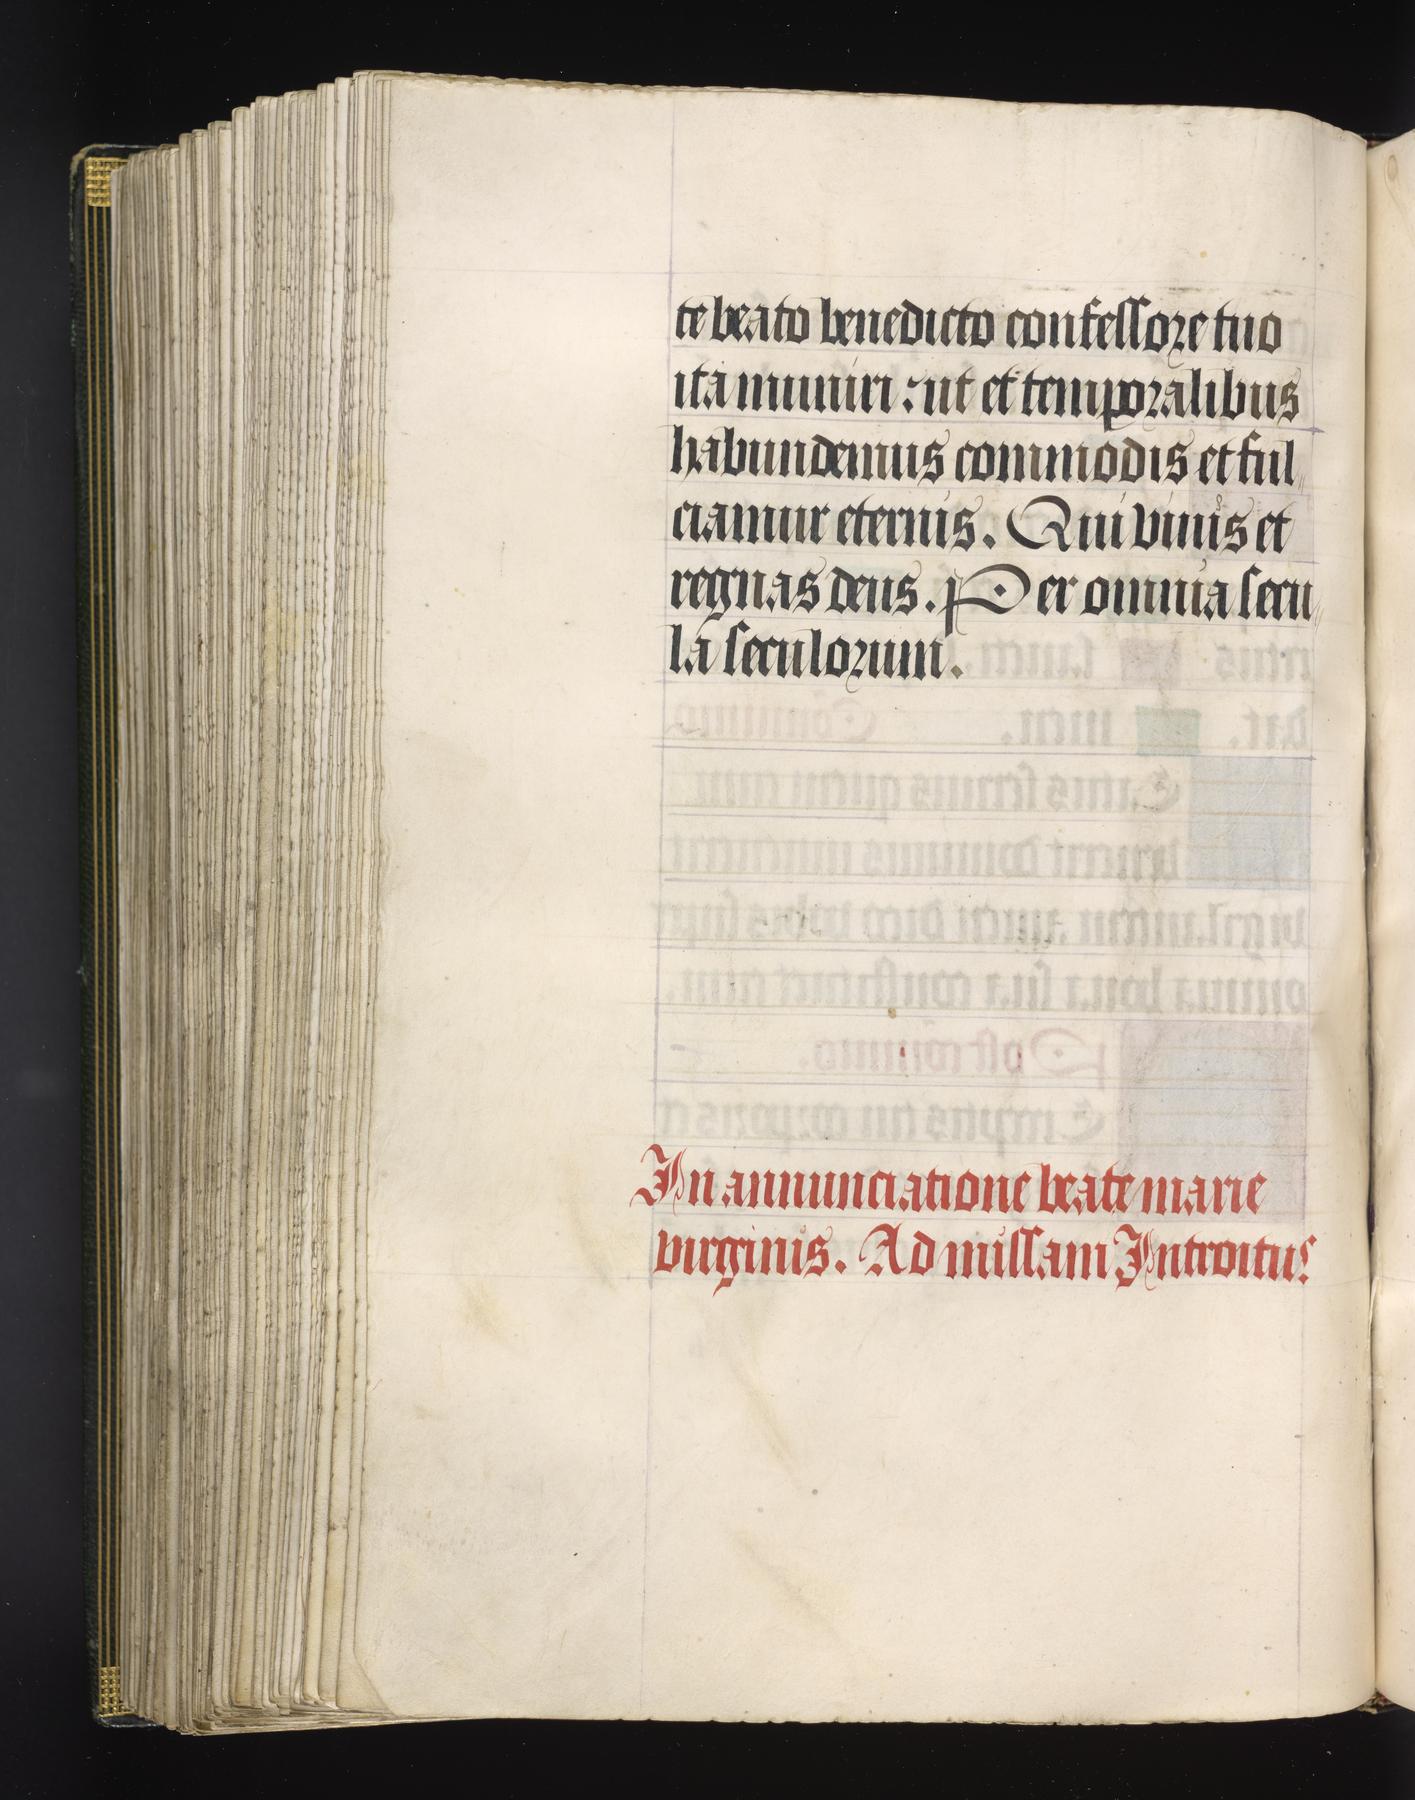 te beato benedicto confessore tuo
ita muniri : ut et temporalibus
habundemus commodis et ful„
ciamur eternis. Qui vivis et
regnas deus. Per omnia secu„
la seculorum.
In annunciatione beate marie
virginis. Ad missam Introitus